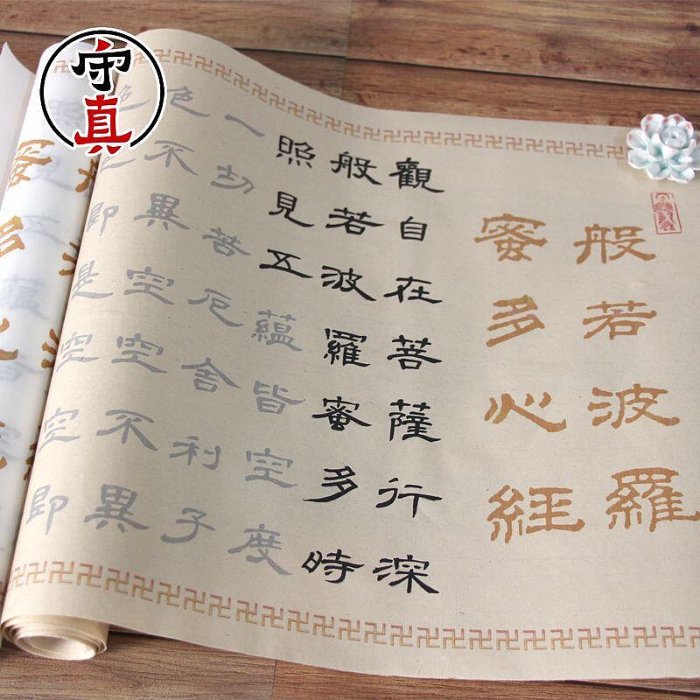 守真
般若波羅
蜜多心經
觀自在菩薩行深
般若波羅蜜多時
照見五蘊皆空度
一切苦厄舍利子
色不異空空不異
色色即是空空即